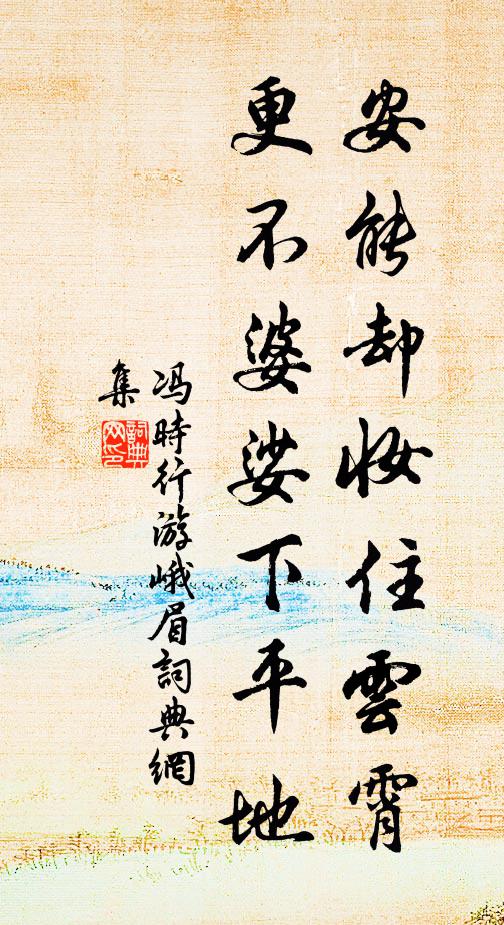 安能却妝住雲霄
更不婆娑下平地
冯時行游峨眉詞典網
集
詞典
网印